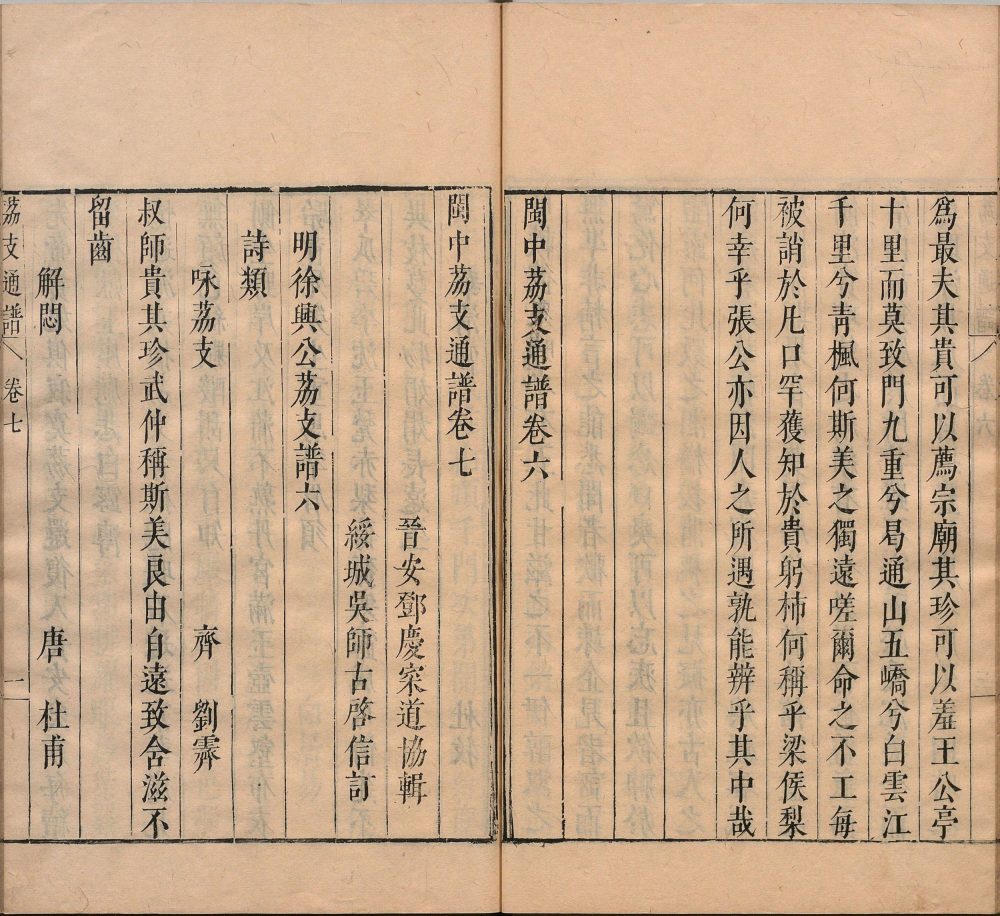 爲最夫其貴可以薦宗廟其珍可以羞王公亭
十里而莫致門九重兮曷通山五嶠兮白雲江
千里兮青楓何斯美之獨遠嗟爾命之不工每
被誚於凡口罕獲知於貴躬柿何稱乎梁侯梨
何幸乎張公亦因人之所遇孰能辨乎其中哉
閩中荔支通譜卷六
閩中荔支通譜卷七
晉安鄧慶寀道協輯
綏城吳師古啓信訂
明徐興公荔支譜六
詩類
咏荔支　齊　劉霽
叔師貴其珍武仲稱斯美良由自遠致含滋不
留齒
解悶　唐　杜甫
荔支通譜　卷七　一